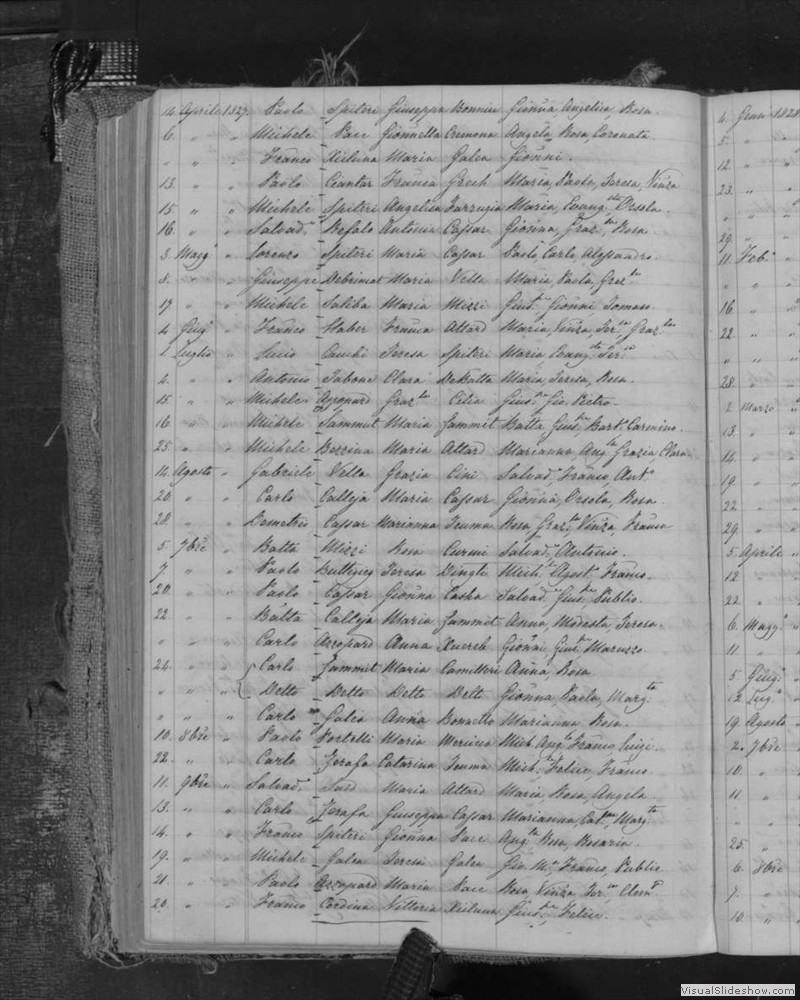 14 Aprile 1827 Paolo Spiteri Giuseppa Bonnici Gionna, Angelica, Rosa.
6. " " Michele Pace Gionnella Cremona Angela, Rosa, Coronata
" " " Franco Xicluna Maria Galea Gionni.
13. " " Paolo Ciantar Franca Grech Maria, Paola, Teresa, Vinza
15 " " Michele Spiteri Angelica Farrugia Maria, Evang.ta Orsola.
16. " " Salvad.e Refalo Antonia Cassar Gionna, Graz.a, Rosa.
3. Magg.o " Lorenzo Spiteri Maria Cassar Paolo Carlo, Alessandro.
8. " " Giuseppe Debrincat Maria Vella Maria, Paola, Graz.a
17. " " Michele Saliba Maria Mizzi Gius.e Gionni Tomaso.
4 Giug.o " Franco Haber Franca Attard Maria, Vinza, Ter.a, Graz.a
1. Luglio " Lucio Cauchi Teresa Spiteri Maria Evang.ta Ter.a
4. " " Antonio Tabone Clara DeBatta Maria, Teresa, Rosa.
15. " " Michele Azzopard Graz.a Cilia Gius.e Gio. Pietro.
16. " " Michele Zammit Maria Zammit Batta Gius.e, Bart.o Carmino.
25. " " Michele Bezzina Maria Attard Marianna, Ang.la Grazia, Clara.
14 Agosto " Gabriele Vella Grazia Cini Salvad.e, Franco, Ant.o
20 " " Carlo Calleja Maria Cassar Gionna, Orsola, Rosa.
28. " " Demetrio Cassar Marianna Teuma Rosa, Graz.a, Vinza, Franca
5. 7bre " Batta Mizzi Rosa Curmi Salvad.e, Antonio.
7. " " Paolo Buttigieg Teresa Dingli Mich.e, Agost.o Franco.
20. " " Paolo Cassar Gionna Saliba Salvad.e Gius.e, Publio.
22. " " Batta Calleja Maria Zammit Anna, Modesta, Teresa.
" " " Carlo Azzopard Anna Xuereb Gionni Gius.e Maruzzo.
24. " " Carlo Zammit Maria Camilleri Anna, Rosa
" " " Detto Detto Detta Dett Gionna, Paola, Marg.ta
" " " Carlo Galea Anna Bonnello Marianna, Rosa.
10. 8bre " Paolo Portelli Maria Mercieca Mich. Ang.lo Franco, Luigi.
22. " " Carlo Zerafa Catarina Teuma Mich.e, Felice, Franco.
11. 9bre " Salvad.e Said Maria Attard Maria, Rosa, Angela.
13. " " Carlo Zerafa Giuseppa Cassar Marianna, Cat.na, Marg.ta
14. " " Franco Spiteri Gionna Pace Ang.la Rosa, Rosaria.
19. " " Michele Galea Teresa Galea Gio. M.a, Franco, Publio
21. " " Paolo Azzopard Maria Pace Rosa, Vinza, Ter.a, Clem.a
20. " " Franco Cordina Vittoria Xicluna Gius.e, Felice.
4. Genn.o 1828
5. " "
12. " "
23. " "
" " "
29. " "
11. Feb.o "
" " "
16. " "
22. " "
" " "
28. " "
2 Marzo "
13. " "
14. " "
19. " "
22. " "
29. " "
5. Aprile "
12 " "
22. " "
6. Magg.o "
11. " "
5. Giug.o "
12. Lug.o "
19. Agosto "
2. 7bre "
10. " "
11. " "
25. "
6. 8bre
7. "
16. "
VisualSlideshow.com